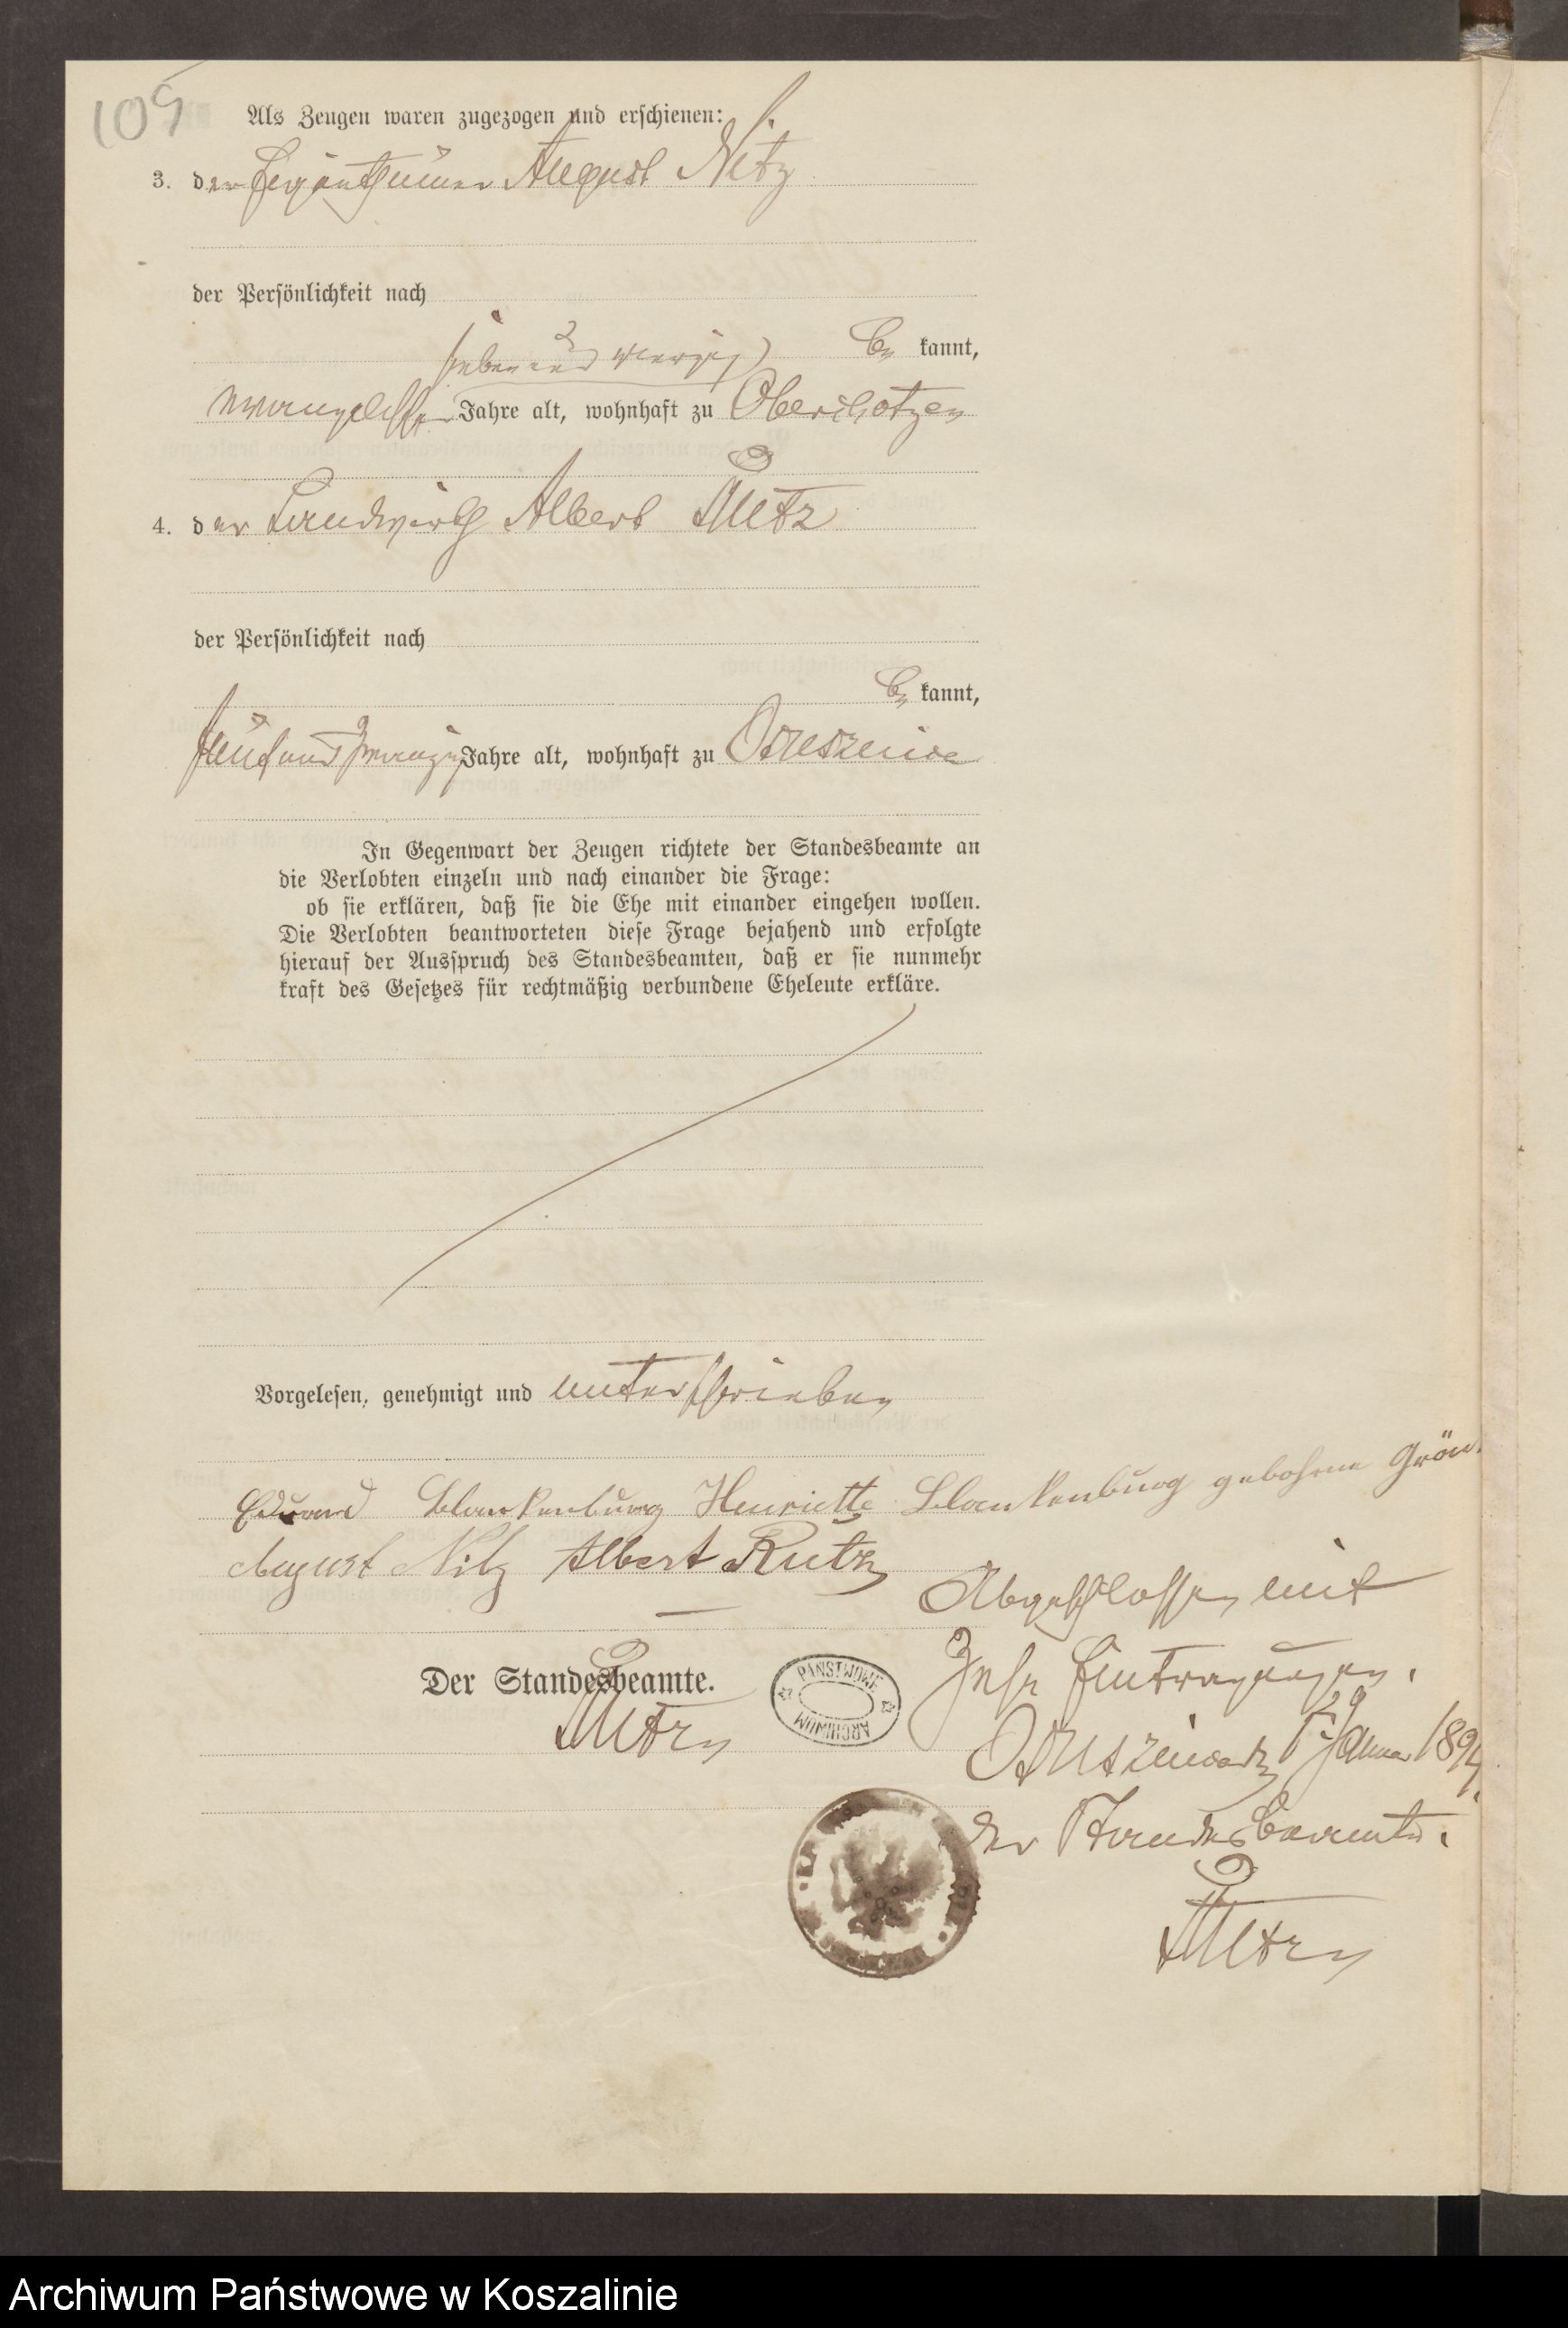 109
Als Zeugen waren zugezogen und erschienen:
3. der Eigenthümer August Nitz
der Persönlichkeit nach
be kannt,
sieben und vierzig
Jahre alt, wohnhaft zu
4. der Landwirth Albert Rutz
der Persönlichkeit nach
be kannt,
fünf und zwanzig Jahre alt, wohnhaft zu
In Gegenwart der Zeugen richtete der Standesbeamte an
die Verlobten einzeln und nach einander die Frage:
ob sie erklären, daß sie die Ehe mit einander eingehen wollen.
Die Verlobten beantworteten diese Frage bejahend und erfolgte
hierauf der Ausspruch des Standesbeamten, daß er sie nunmehr
kraft des Gesetzes für rechtmäßig verbundene Eheleute erkläre.
Vorgelesen, genehmigt und unterschrieben
Eduard Blankenburg Henriette Blankenburg gebohrne
August Nitz Albert Rutz
Abgeschlossen mit
Zehn Eintragungen.
Der Standesbeamte.
Rutz
PAŃSTWOWE
ARCHIWUM
Januar 1894.
der Standesbeamte.
Rutz
Archiwum Państwowe w Koszalinie